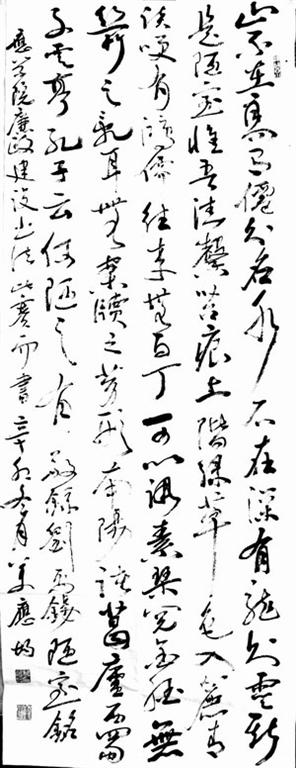 山不在高有僊則名水不在深有龍則雲斯
是陋室惟吾德馨苔痕上階綠草色入簾青
談咲有鴻儒往來無白丁可以調素琴閱金經無
絲竹之亂耳無案牘之勞形南陽諸葛廬西蜀
子雲亭孔子云何陋之有敬錄劉禹錫陋室銘
應省院廉政建設書法比賽而書